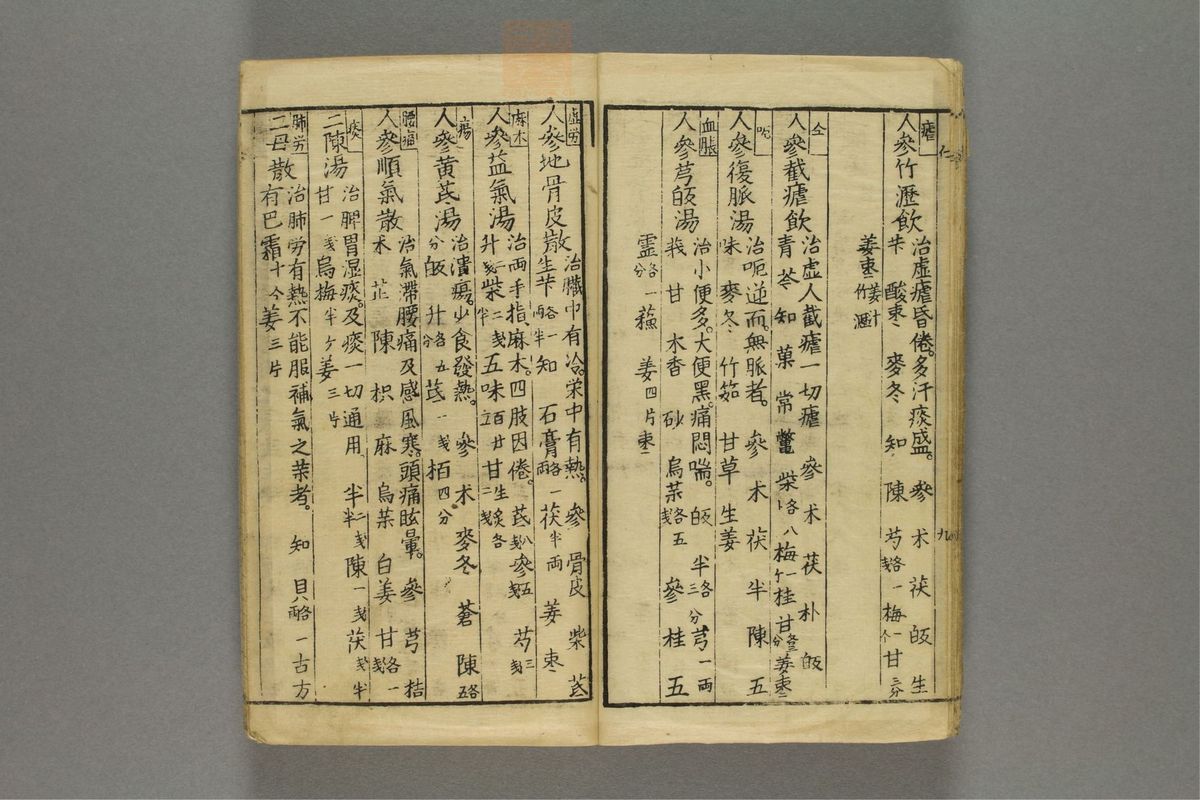 瘧
人參竹瀝飲
治虛瘧昏倦。多汗痰盛。參 朮 茯 皈 生
芐 酸枣 麥冬 知 陳 芍 各一戋 梅一个 甘三分
姜枣 姜汁 竹瀝
仝
人參截瘧飲
治虛人截瘧一切瘧 參 朮 茯 朴 皈
青 苓 知 菓 常 鱉 柴各八 梅一个 桂 甘 各三分 姜枣
呃
人參復脈湯
治呃逆而。無脈者。參 朮 茯 半 陳 五
味 麥冬 竹茹 甘草 生姜
血脹
人參芎皈湯
治小便多。大便黑。痛悶喘。皈 半各三分 芎一両
莪 甘 木香 砂 烏茱各五戋 參 桂 五
霊各一分 蘓 姜四片 枣
虛労
人參地骨皮散
治臟中有冷。栄中有熱。參 骨皮 柴 芪
生芐各一両半 知 石膏各一両 茯半両 姜 枣
麻木
人參益氣湯
治両手指、麻木。四肢因倦。芪八戋 參五戋 芍三戋
升二戋 柴二戋半 五味百廿立 甘生二戋 炙各
瘍
人參黄芪湯
治潰瘍。少食發熱。參 朮 麥冬 蒼 陳各五
分 皈 升各五分 芪一戋 栢四分
腰痛
人參順氣散
治氣滯腰痛及感風寒。頭痛眩暈。參 芎 桔
朮 芷 陳 枳 麻 烏茱 白姜 甘各一戋
痰
二陳湯
治脾胃湿痰。及痰一切通用 半二戋半 陳一戋 茯一戋半
甘一戋 烏梅半ケ 姜三片
肺労
二母散
治肺労有熱不能服補氣之茱者。 知 貝各一両 古方
有巴霜十今 姜三片